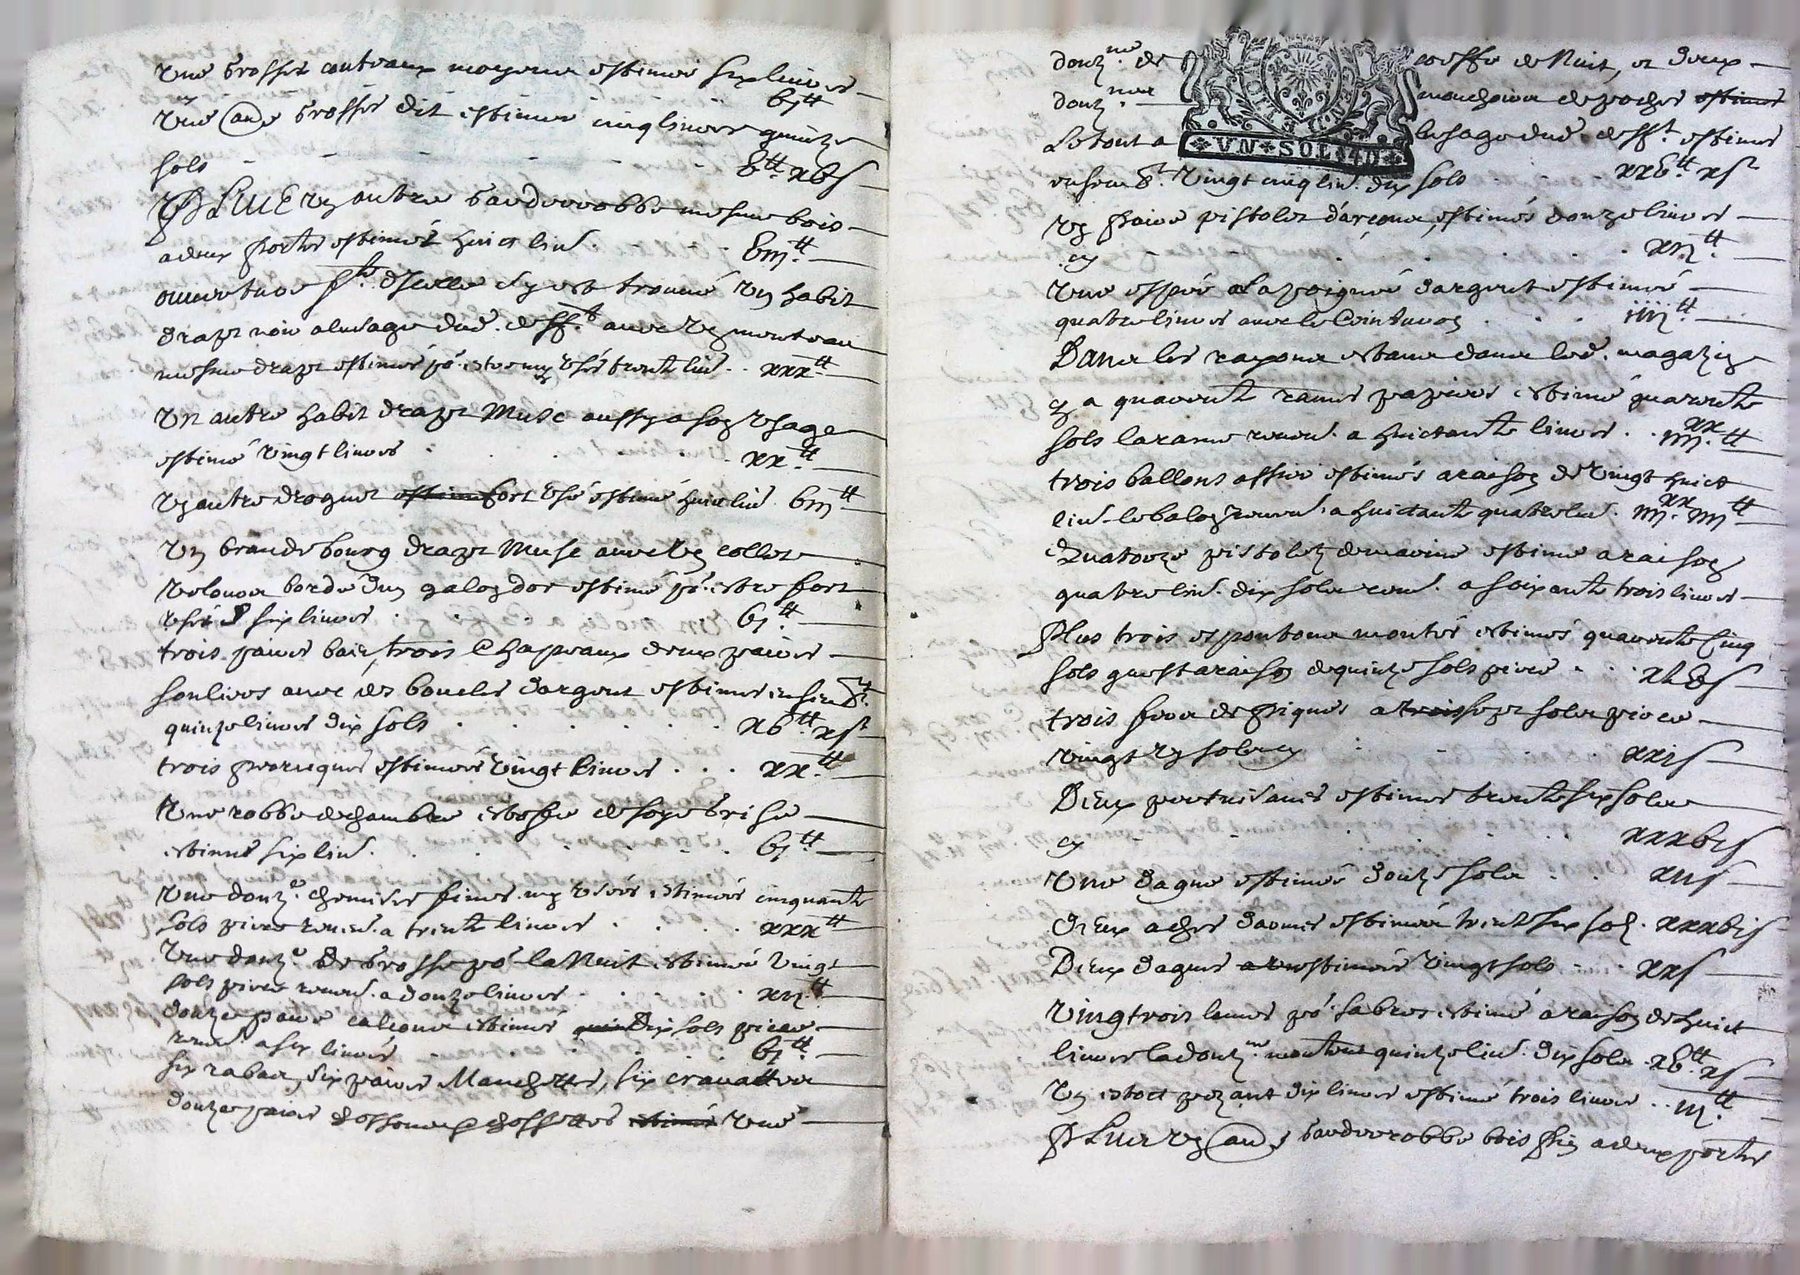 Une grosses couteaux moyens estimés six livres
vjtt
Une au(e) grosses dit estimée cinq livres quinze
sols vtt xvs
PLUE un autre garderobbe mesme bois
a deux portes estimés huict liv. viijtt
ouverture d'icelle s'y est trouvé un habit
drapt noir a lusage dud. deff.t avec un manteau
mesme drapt estimés po. estre my usés trente liv. xxxtt
Un autre habit drapt Muse aussy a son usage
estimé vingt livres xxtt
Un autre droguet fort usé estimé huict liv. viijtt
Un brandebourg drapt Muse avec un collet
velours bordé d'un galon dor estimé po. estre fort
usé six livres vjtt
trois paires bas, trois Chapeaux deux paires
souliers avec des boucles d'argent estimés ensem.t
quinze livres dix sols xvtt xs
trois perruques estimées vingt livres xxtt
Une robbe de chambre estoffe de soye grise
estimée six liv. vjtt
Une douz.e chemises fines my usées estimées cinquante
sols piece reven. a trente livres xxxtt
Une douz.e de grosses po. la Nuit estimées vingt
sols piece reven. a douze livres xijtt
douze paires calçons estimés dix sols piece
reven. a six livres vjtt
six rabas, six paires Manchettes, six cravattes
douze paires chossettes estimés une
douz.ne de coeffes de Nuit, et deux
douz.nes mouchoirs de poches estimés
Le tout a lusage dud. deff.t estimés
ensem.t vingt cinq liv. dix sols xxvtt xs
UN SOL 4 D
Un paire pistolets d'arçons, estimés douze livres
cy xijtt
Une espée a la poignée d'argent estimée
quatre livres avec le Ceinturon iiijtt
Dans les rayons estans dans led. magazin
y a quarente rames papiers estimé quarente
sols la rame reven. a huictante livres iiijxxtt
trois ballons estimés a raison de vingt huict
liv. le balon reven. a huictante quatre liv. iiijxx iiijtt
Quatorze pistoletz de marine estimé a raison
quatre liv. dix sols reven. a soixante trois livres
Plus trois espontons montés estimés quarente cinq
sols quest a raison de quinze sols piece xLvs
trois fers de piques a sept sols piece
vingt un sols cy xxis
Deux pertuisanes estimées trente six sols
cy xxxvis
Une dague estimée douze sols xijs
Deux aches d'armes estimées trente six sols. xxxvis
Deux dagues estimées vingt sols xxs
Vingtrois lames po. sabres estimé a raison de huict
livres la douz.ne montent quinze liv. dix sols xvtt xs
Un estoct pezant dix livres estimé trois livres iijtt
PLus un au(e) garderobbe bois Pin a deux portes